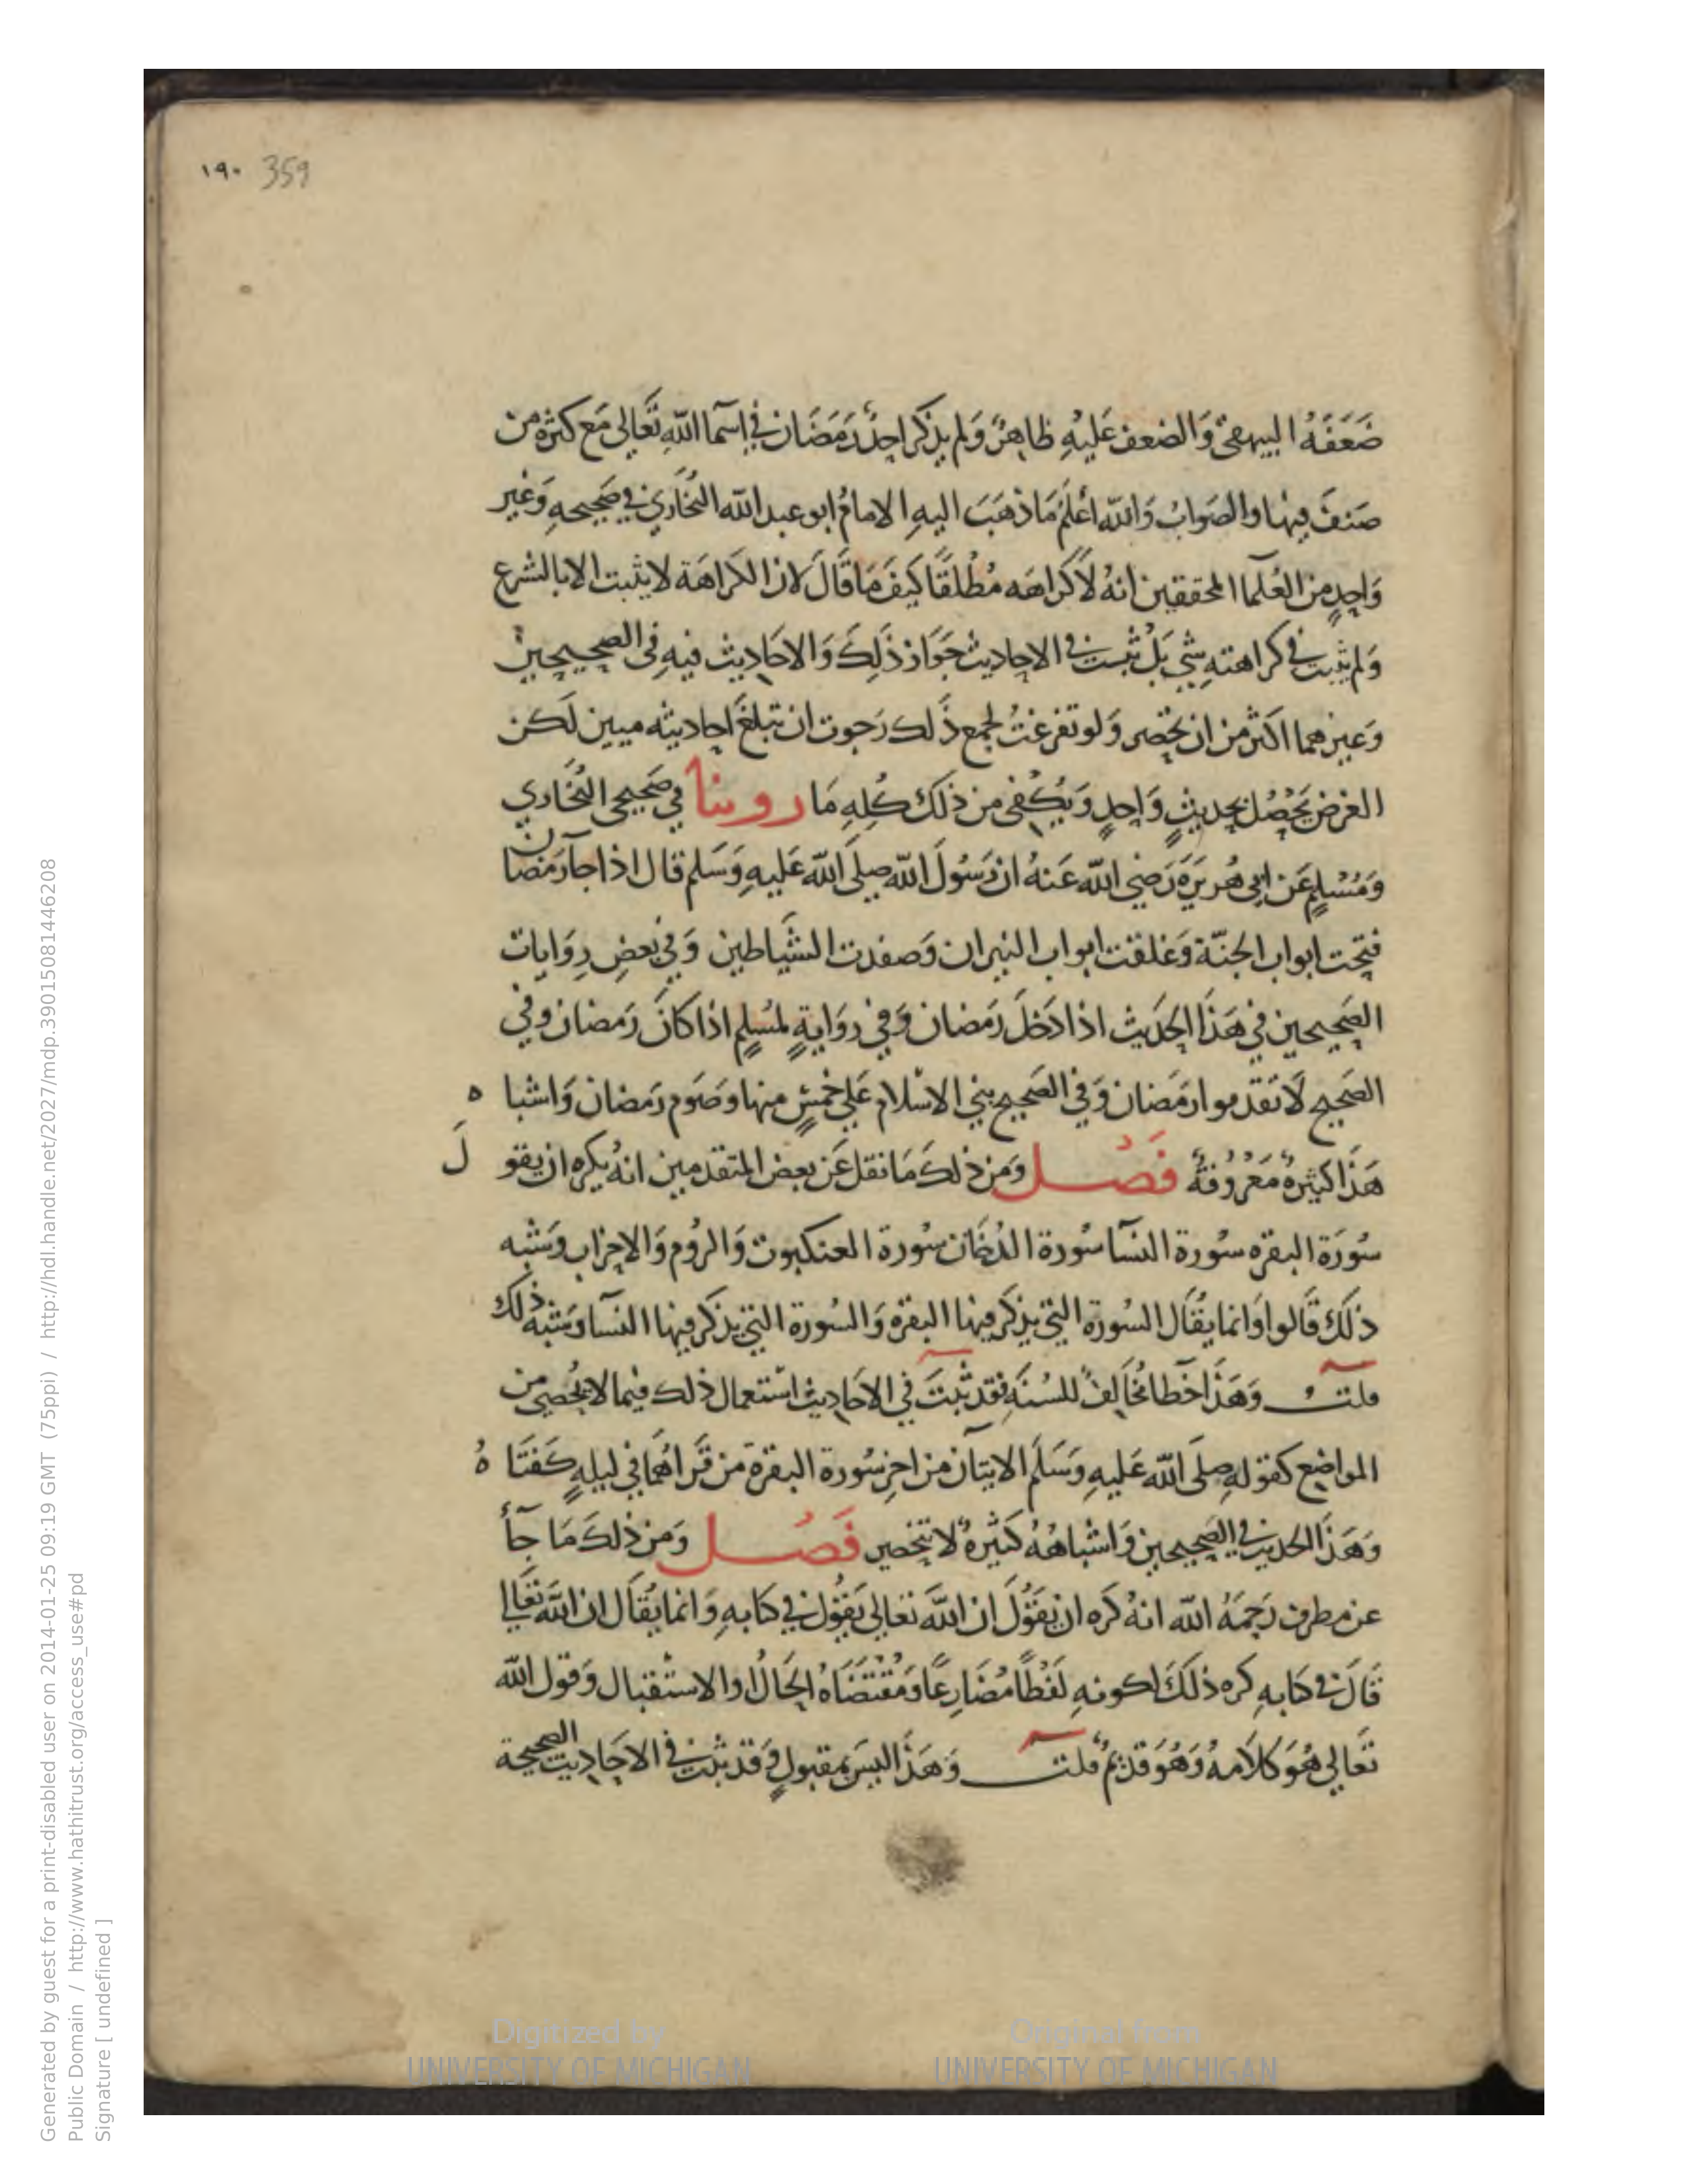 ١٩٠ 359
ضَعَفَهُ البيهقي وَالضعف عَليْهِ ظاهرٌ وَلم يذكر احدٌ رَمَضَان في اسمآ اللّه تَعَالى مَع كثرة من
صَنفَ فيها والصَوابُ وَاللّه اعْلَمُ مَا ذهَبَ اليهِ الامامُ ابو عبد اللّه البُخَاري في صَحيحهِ وَغير
وَاحدٍ من العُلمآ المحققين انهُ لاَ كَراهَه مُطْلقًا كيفَ مَا قَالَ لان الكَراهَة لا يثبت الا بالشرع
وَلم يثبت في كراهتهِ شي بَلْ ثبت في الاحاديث جَوَاز ذَلِكَ وَالاحَاديث فيهِ في الصحيحين
وَغيرهما اكثر من ان تحصر وَلو تفرغتُ لجمع ذَلك رَجوت ان تبلغَ احاديثه ميين لَكن
الغرض يَحْصُل بحديثٍ وَاحدٍ وَيَكْفى من ذلكَ كُلهِ مَا روينا في صَحيحي البُخَاري
وَمُسْلمٍ عَن ابي هُريرَة رَضي اللّه عَنهُ ان رَسُولَ اللّه صلى اللّه عَليهِ وَسَلم قال اذا جآ رَمضان
فتحت ابواب الجنّة وَغلقت ابواب النيران وَصفدت الشَيَاطين وَفي بَعضِ رِوَايات
الصَحيحين في هَذَا الحَديث اذا دَخلَ رَمضان وَفي روَايةٍ لمُسْلمٍ اذا كانَ رَمضان وفي
الصَحيح لاَ تَقدموا رَمَضان وَفي الصَحيح بني الاسْلام عَلى خمْسٍ منها وَصَوم رَمضان وَاشبا ه
هَذا كثيرةٌ مَعْرُوفةٌ فَصْل وَمن ذلكَ مَا نقل عَن بعض المتقدمين انهُ يكره ان يقو لَ
سُورَة البقره سُورة النسآ سُورة الدُخَان سُورة العنكبوت وَالرُوم وَالاحزاب وَشبه
ذلكَ قَالوا وَانما يقَال السُورَة التي يذكر فيها البقرة وَالسُورة التي يذكر فيها النسآ وَشبه ذلك
قلت وَهَذا خطا مُخَالفٌ للسُنةِ فقد ثبتَ في الاحَاديث استعمال ذلك فيما لا يُحصى من
المواضع كقوله صلى اللّه عَليهِ وَسَلَم الايتان من اخر سُورة البقرة مَن قَراهُمَا في ليلهٍ كَفتَا هُ
وَهَذَا الحَديث في الصَحيحين وَاشباهُهُ كثيرهٌ لا تنحصر فَصْل وَمن ذلكَ مَا جآ
عن مطرف رَحِمَهُ اللّه انهُ كره ان يَقُولَ ان اللَّهَ تعَالى يَقُول في كتابهِ وَانما يُقَال ان اللّهَ تعَالى
قَالَ في كتابهِ كره ذلَكَ لكونهِ لَفْظًا مُضَارعًا وَمُقْتَضَاهُ الحَالُ او الاسْتقبال وَقول اللّه
تَعَالى هُوَ كلاَمهُ وَهُوَ قديمٌ قلت وَهَذا ليسَ بمقبولٍ وَقد ثبت في الاحَاديث الصحيحة
Digitized by UNIVERSITY OF MICHIGAN
Original from UNIVERSITY OF MICHIGAN
Generated by guest for a print-disabled user on 2014-01-25 09:19 GMT (75ppi) / http://hdl.handle.net/2027/mdp.39015081446208
Public Domain / http://www.hathitrust.org/access_use#pd
Signature [ undefined ]